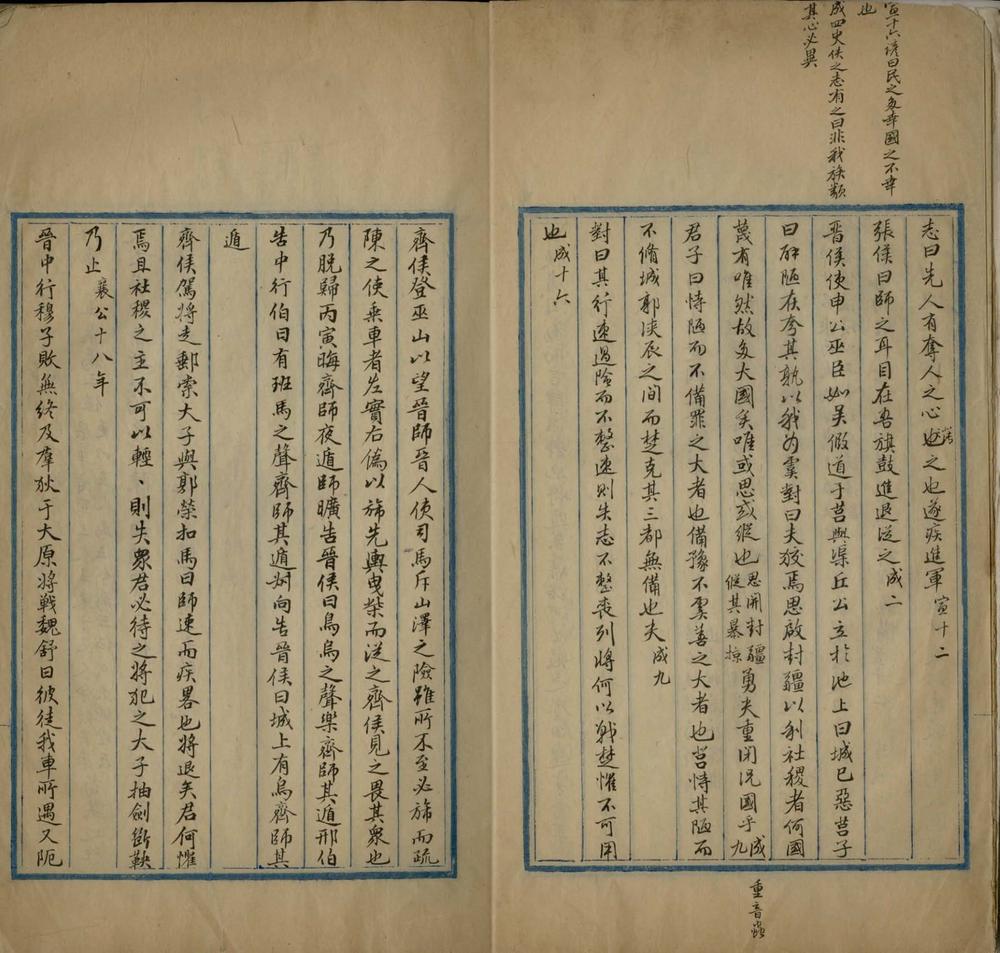 宣十六諺曰民之多幸國之不幸
也
成四史佚之志有之曰非我族類
其心必異
志曰先人有奪人之心薄之也遂疾進軍 宣十二
張侯曰師之耳目在吾旗鼓進退從之 成二
晉侯使申公巫臣如吳假道于莒與渠丘公立於池上曰城已惡莒子
曰辟陋在夷其孰以我為虞對曰夫狡焉思啟封疆以利社稷者何國
蔑有唯然故多大國矣唯或思或縱也 思開封疆 縱其暴掠 勇夫重閉況國乎 成九
君子曰恃陋而不備罪之大者也備豫不虞善之大者也莒恃其陋而
不脩城郭浹辰之間而楚克其三都無備也夫 成九
對曰其行速過險而不整速則失志不整喪列將何以戰楚懼不可用
也 成十六
重音蟲
齊侯登巫山以望晉師晉人使司馬斥山澤之險雖所不至必旆而疏
陳之使乘車者左實右偽以旆先輿曳柴而從之齊侯見之畏其眾也
乃脫歸丙寅晦齊師夜遁師曠告晉侯曰鳥烏之聲樂齊師其遁邢伯
告中行伯曰有班馬之聲齊師其遁叔向告晉侯曰城上有烏齊師其
遁
齊侯駕將走郵棠大子與郭榮扣馬曰師速而疾畧也將退矣君何懼
焉且社稷之主不可以輕、則失眾君必待之將犯之大子抽劍斷鞅
乃止 襄公十八年
晉中行穆子敗無終及羣狄于大原將戰魏舒曰彼徒我車所遇又阨